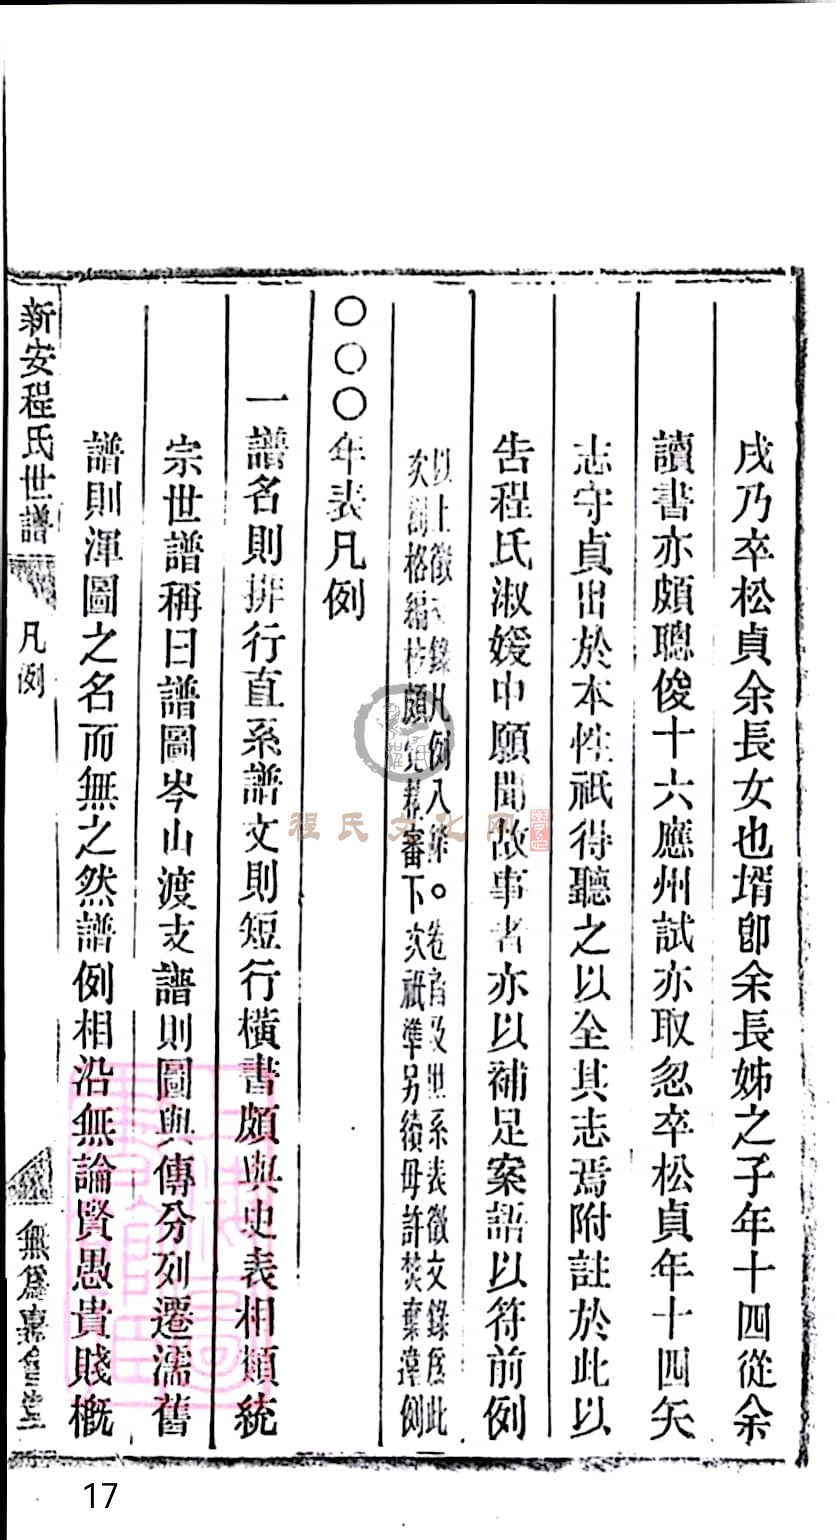 戌乃卒松貞余長女也壻卽余長姊之子年十四從余
讀書亦頗聰俊十六應州試亦取忽卒松貞年十四矢
志守貞出於本性祇得聽之以全其志焉附註於此以
告程氏淑媛中願聞故事者亦以補足案語以符前例
以上徵文錄凡例入○卷首及世系表徵文錄爲此
次 格編 頗 審下次祇準另續毋許焚棄違例
○○○年表凡例
一譜名則排行直系譜文則短行橫書頗與史表相類統
宗世譜稱曰譜圖岑山渡支譜則圖與傳分列遷濡舊
譜則渾圖之名而無之然譜例相沿無論賢愚貴賤概
新安程氏世譜
凡例
無爲集
程氏文化网
17